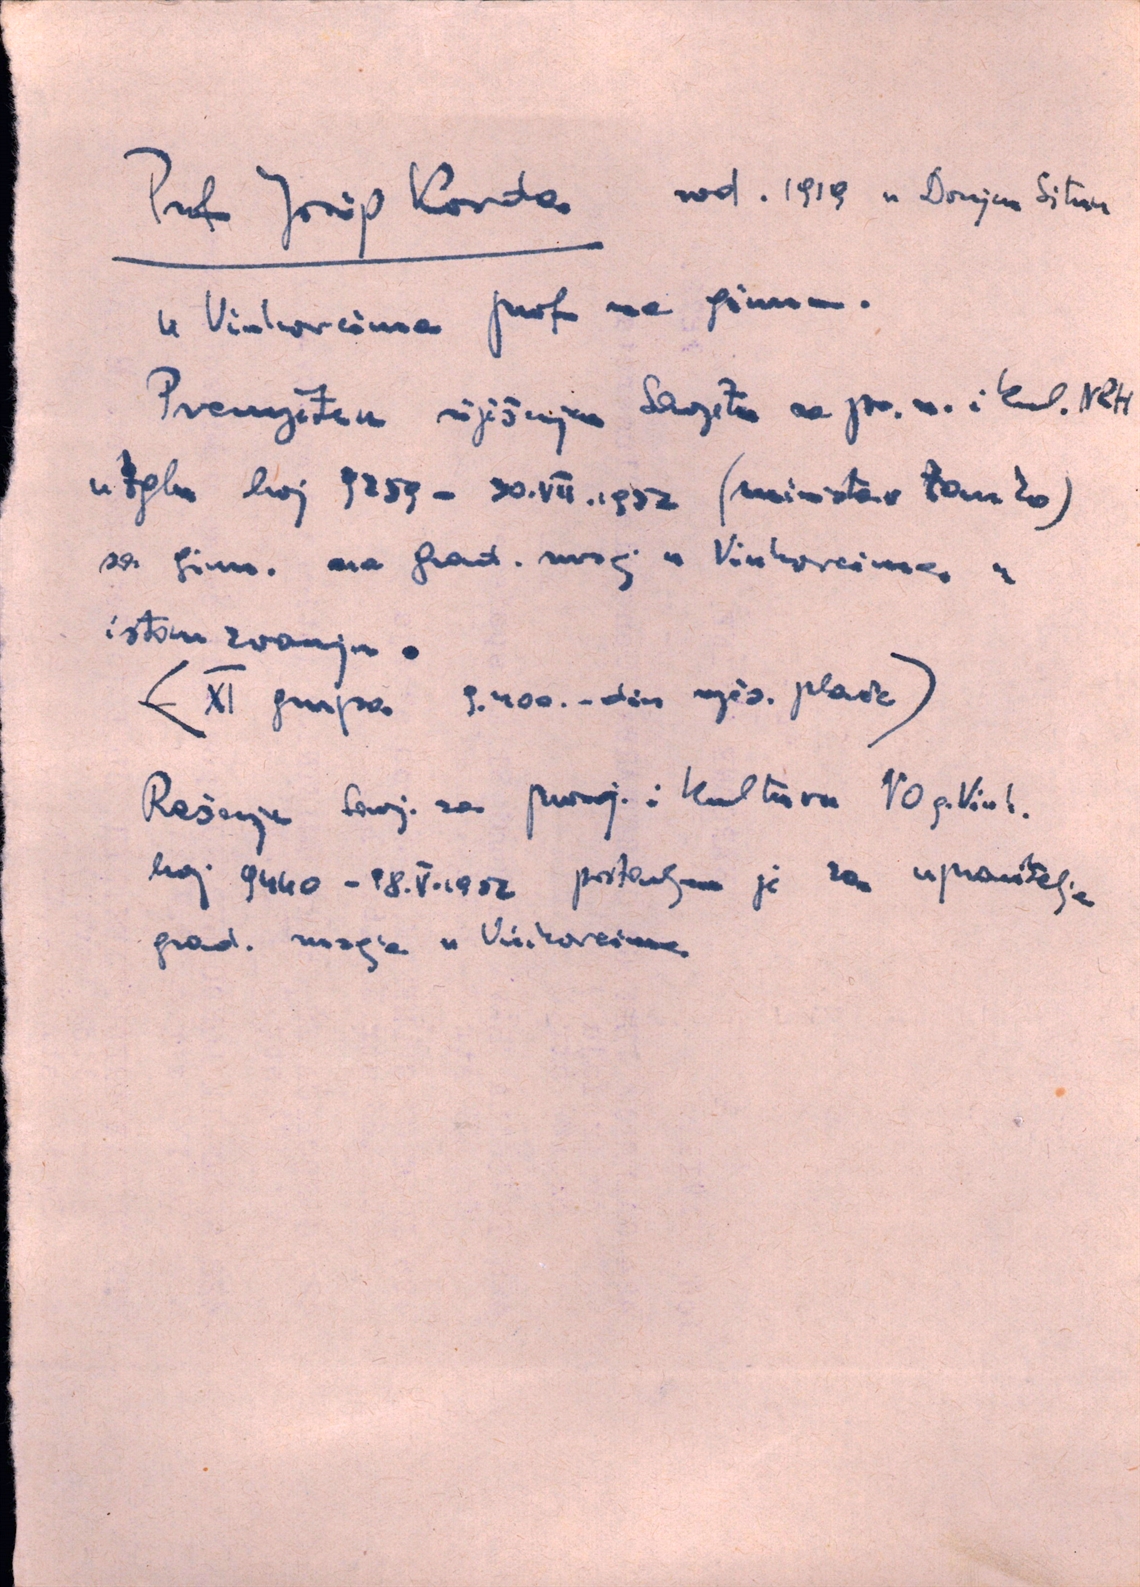 Prof Josip Korda rođ. 1919 u Donjem Sitnu
u Vinkovcima prof. na gimn.
Premješten rješenjem Savjeta za pr. n. i kul. NRH
u Zgbu broj 9259 - 30.VII.1952 (ministar
sa gimn. na grad. muzej u Vinkovcima u
istom zvanju.
(XI grupa 9.400.- din mjes. plaće)
Rešenje Savj. za prosvj. i kulturu NO g. Vink.
broj 9440 - 18.V.1952 postavljen je za upravitelja
grad. muzeja u Vinkovcima